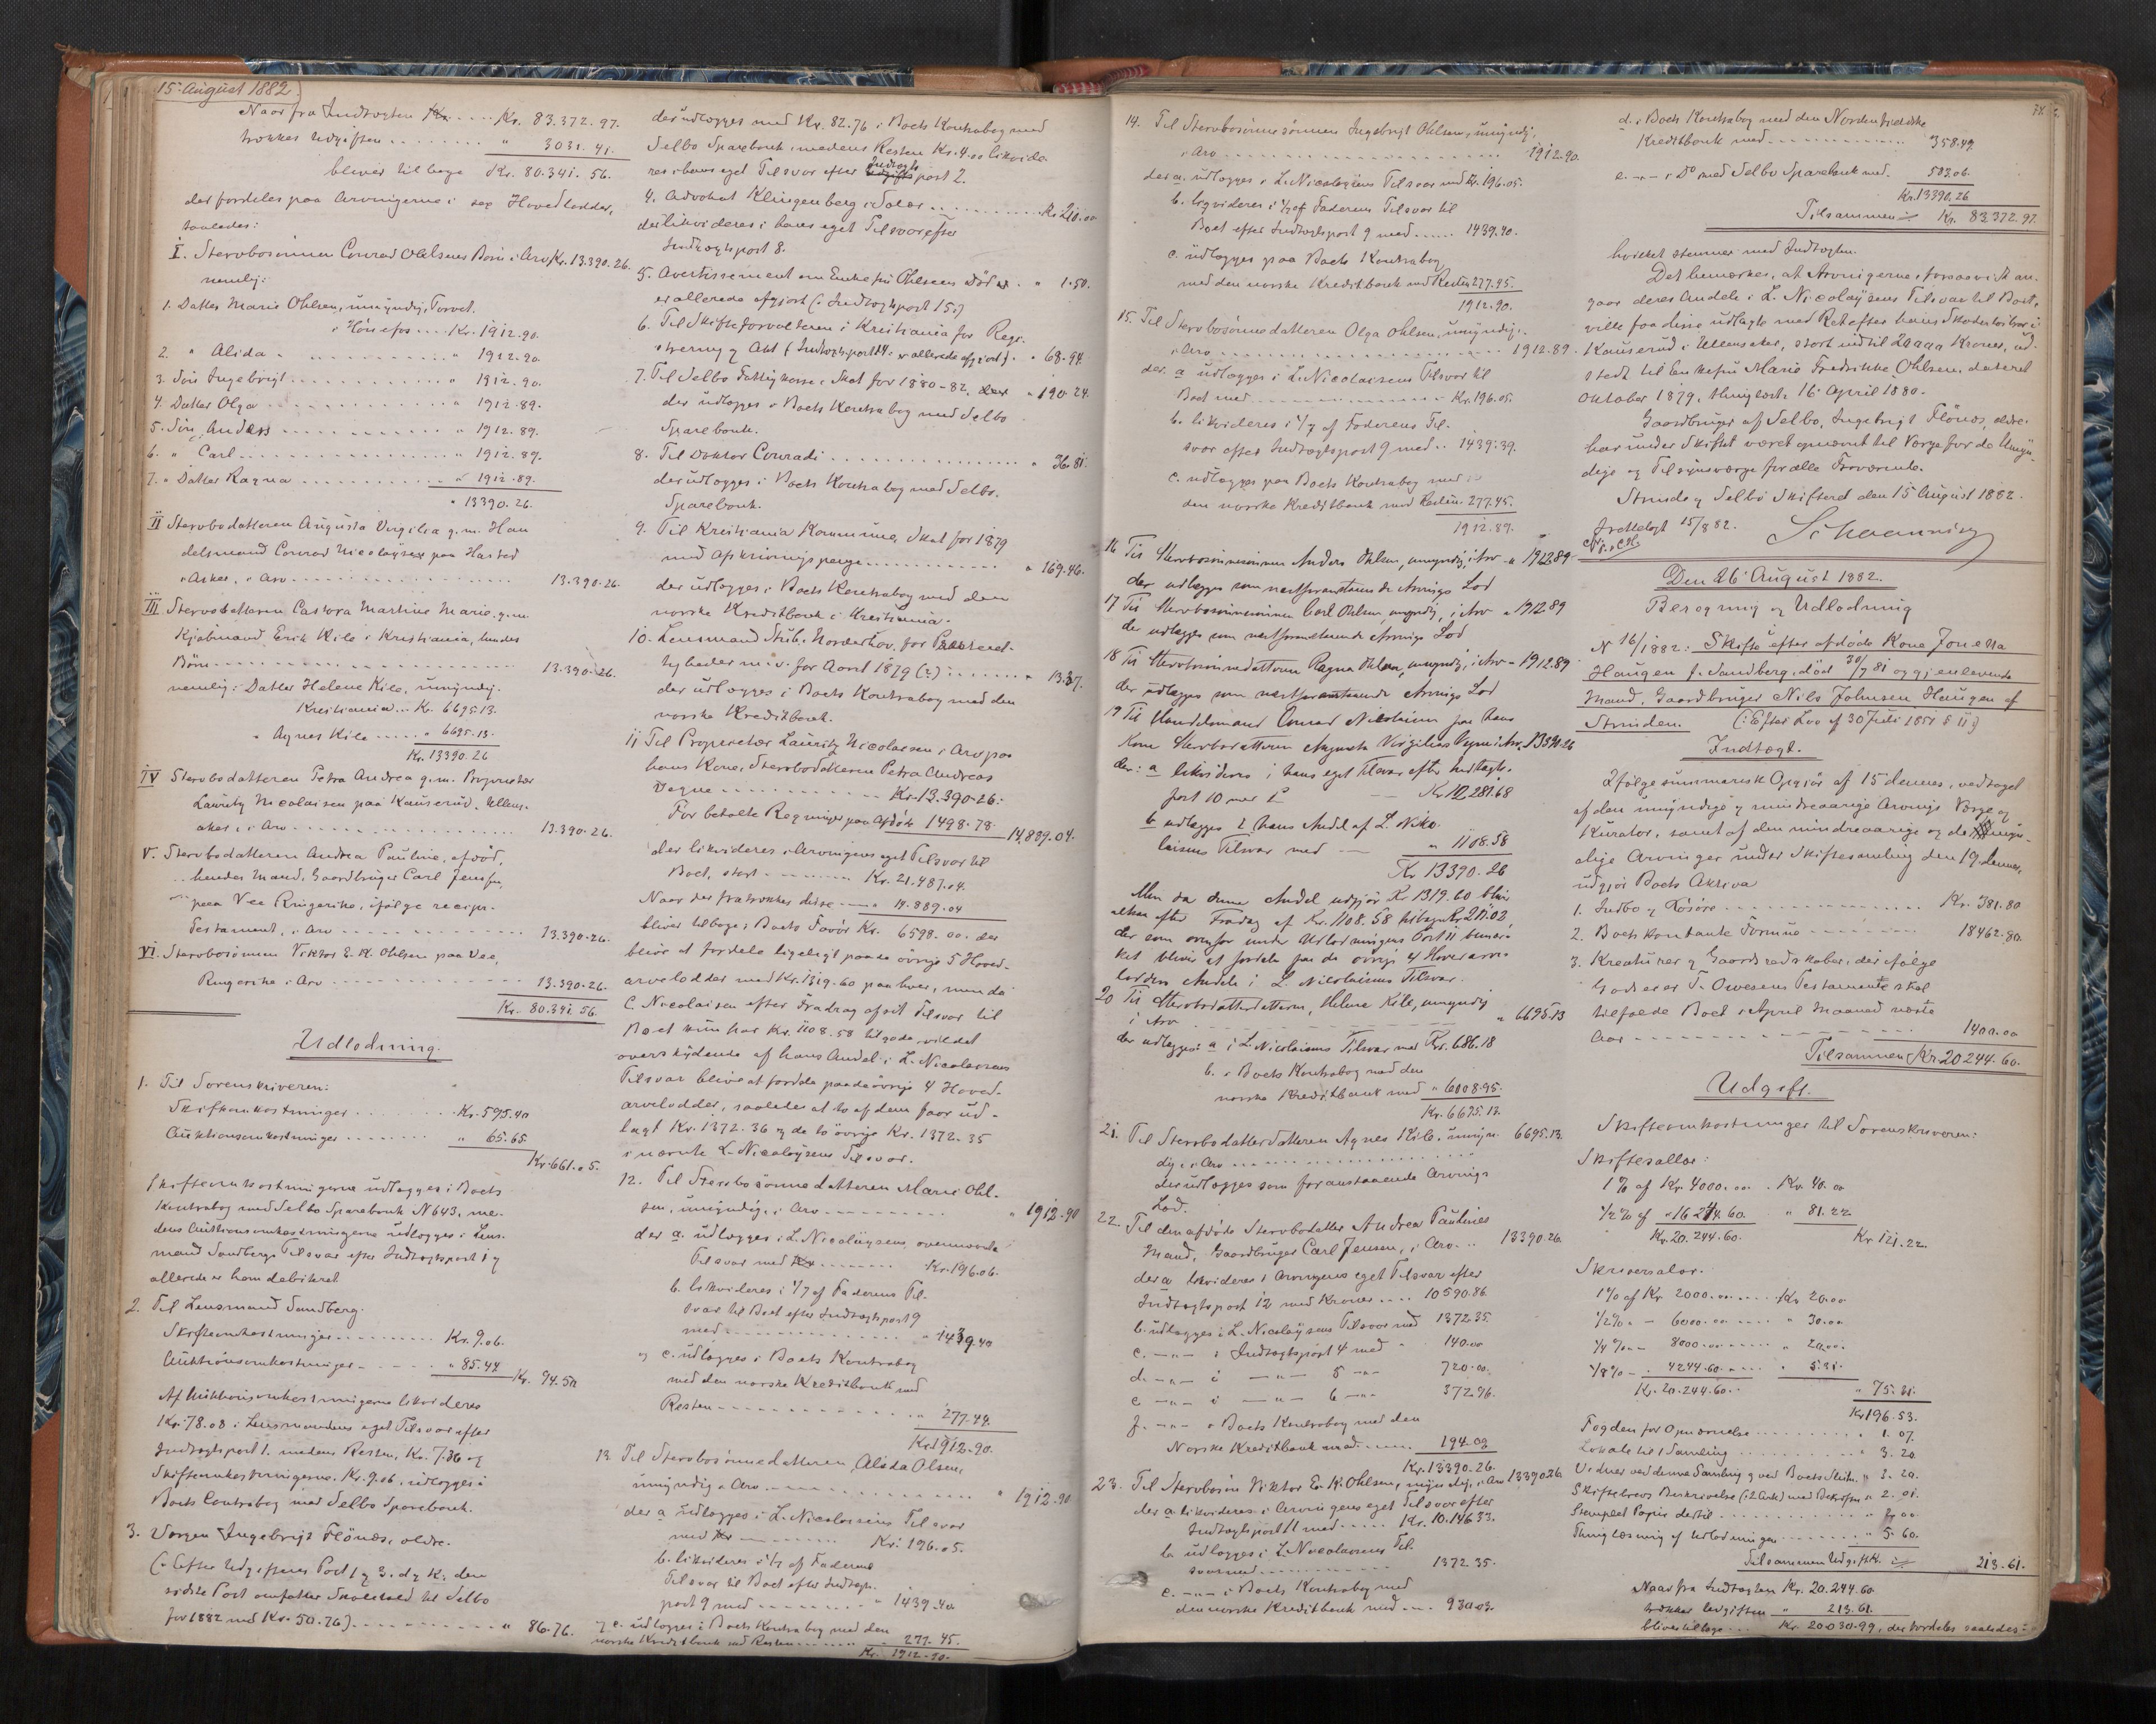 15. August 1882.
Naar fra Indtægten Kr. . . . . Kr. 83.372.97.
trækkes Udgiften . . . . . . . . " 3031.41.
bliver tilbage Kr. 80.341.56.
der fordeles paa Arvingerne i sex Hovedlodder,
saaledes:
I. Stervbosønnen Conrad Ohlsens Børn i Arv Kr. 13.390.26.
nemlig:
1. Datter Marie Ohlsen, umyndig, Torvet.
i Hönefos . . . . Kr. 1912.90.
2. " Alida " . . . . . . " 1912.90.
3. Søn Ingebrigt . . . . . . " 1912.90.
4. Datter Olga . . . . . . " 1912.89.
5. Søn Anders . . . . . . " 1912.89.
6. " Carl . . . . . . " 1912.89.
7. " Datter Ragna . . . . . . " 1912.89.
" 13390.26.
II Stervbodatteren Augusta Virgilia g.m. Han
delsmand Conrad Nicolaysen paa Hasted
i Asker, i Arv . . . . . . 13.390.26.
III Stervbodatteren Castora Martine Marie, g.m.
Kjøbmand Erik Kile i Kristiania, hendes
Børn . . . . . . 13.390.26.
nemlig: Datter Helene Kile, umyndig.
Kristiania . . . Kr. 6695.13.
" Agnes Kile . . . . . " 6695.13.
Kr. 13390.26
IV Stervbodatteren Petra Andrea g.m. Proprietær
Lauritz Nicolaisen paa Kauserud, Ullens-
aker, i Arv . . . . . . 13.390.26.
V. Stervbodatteren Andrea Pauline, afdöd,
hendes Mand, Gaardbruger Carl Jensen,
paa Vee Ringerike, ifølge recipr.
Testament, i Arv . . . . . . 13.390.26.
VI. Stervbosønnen Viktor E. K. Ohlsen paa Vee,
Ringerike i Arv . . . . . . 13.390.26.
Kr. 80.341.56.
Udlodning.
1. Til Sorenskriveren:
Skifteomkostninger . . . . . . Kr. 595.40
Auktionsomkostninger . . . . . . " 65.65
Kr. 661.05.
Skifteomkostningerne udlægges i Boets
Kontrabog med Selbo Sparebank N 643, me-
dens Auktionsomkostningerne udlægges i Lens-
mand Sandbergs Tilsvar efter Indtægtspost 1 og
allerede er ham debiteret
2. Til Lensmand Sandberg.
Skifteomkostninger . . . . . . Kr. 9.06.
Auktionsomkostninger . . . . . . " 85.44
Kr. 94.50
Af Auktionsomkostningerne likvideres
Kr. 78.08 i Lensmandens eget Tilsvar efter
Indtægtspost 1. medens Resten, Kr. 7.36 og
Skifteomkostningerne, Kr. 9.06, udlægges i
Boets Contrabog med Selbo Sparebank.
3. Vergen Ingebrigt Flönæs, ældre.
(: Efter Udgiftens Post 1 g 3. d g k; den
sidste Post omfatter til Selbo
for 1882 med Kr. 50.26) . . . . . . " 86.76.
der udlægges med Kr. 82.76 i Boets Kontrabog med
Selbo Sparebank, medens Resten Kr. 4.00 likvide-
res i hans eget Tilsvar efter Indtægts post 2.
4. Advokat Klingenberg i Salær . . . . . . Kr. 210.00
der likvideres i hans eget Tilsvar efter
Indtægtspost 8.
5. Avertissement om Enkefru Ohlsens Død . . " 1.50.
er allerede afgjort (: Indtægtspost 15:)
6. Til Skifteforvalteren i Kristiania for Regi-
strering g Akt (Indtægtspost 14: er allerede afgjort) . " 68.94.
7. Til Selbo Fattigkasse i Skat for 1880-82, " 190.24.
der udlægges i Boets Kontrabog med Selbo
Sparebank.
8. Til Doktor Conradi . . . . . . " 36.81.
der udlægges i Boets Kontrabog med Selbo.
Sparebank.
9. Til Kristiania Kommune, Skat for 1879
med Afskrivningspenge . . . . . . " 169.46.
der udlægges i Boets Kontrabog med den
norske Kreditbank i Kristiania.
10. Lensmand Stub, Norderhov, for
m.v. for Aaret 1879 (2) . . . . . . " 13.37.
der udlægges i Boets Kontrabog med den
norske Kreditbank.
11 Til Proprietær Lauritz Nicolaisen i Arv paa
hans Kone, Stervbodatteren Petra Andreas
Vegne . . . . . . Kr. 13.390.26.
For betalte Regninger paa Afdöde 1498.78
14889.04.
der likvideres i Arvingens eget Tilsvar til
Boet, stort . . . . . . Kr. 21.487.04.
Naar der fratrækkes disse . . . " 14.889.04
bliver tilbage i Boets Favör Kr. 6598.00. der
bliver at fordele ligeligt paa de øvrige 5 Hoved-
arvelodder med Kr. 1319.60 paa hver, men da
C. Nicolaisen efter Fradrag af sit Tilsvar til
Boet kun har Kr. 1108.58 tilgode, vil det
overskydende af hans Andel i L. Nicolaisens
Tilsvar blive at fordele paa de øvrige 4 Hoved-
arvelodder, saaledes at to af dem faar ud-
lagt Kr. 1372.36 g de to övrige Kr. 1372.35
i nævnte L. Nicolaysens Tilsvar.
12. Til Stervbosönnedatteren Marie Ohl-
sen, umyndig, i Arv . . . . . . " 1912.90
der a. udlægges i L. Nicolaysens ovennævnte
Tilsvar med . . . . . . Kr. 196.06.
b. likvideres i 1/7 af Faderens Til-
svar til Boet efter Indtægtspost 9
med . . . . . . " 1439.40
og c. udlægges i Boets Kontrabog
med den norske Kreditbank med
Resten . . . . . . " 277.44.
Kr. 1912.90.
13. Til Stervbosönnedatteren, Alida Olsen,
umyndig i Arv . . . . . . " 1912.90
der a udlægges i L. Nicolaisens Tilsvar
med . . . . . . Kr. 196.05.
b. likvideres i 1/7 af Faderens
Tilsvar til Boet efter Indtægts-
post 9 med . . . . . . " 1439.40
g c. udlægges i Boets Kontrabog med den
norske Kreditbank med Resten . . . . . . " 277.45.
Kr. 1912.90.
14. Til Stervbosønnesönnen Ingebrigt Ohlsen, umyndig,
i Arv . . . . . . 1912.90.
der a. udlægges i L. Nicolaysens Tilsvar med Kr. 196.05.
b. likvideres i 1/7 af Faderens Tilsvar til
Boet efter Indtægtspost 9 med . . . . . . 1439.40.
c. udlægges paa Boets Kontrabog
med den norske Kreditbank med Resten 277.45.
1912.90.
15. Til Stervbosönnedatteren Olga Ohlsen, umyndig,
i Arv . . . . . . 1912.89.
der a udlægges i L. Nicolaisens Tilsvar til
Boet med . . . . . . Kr. 196.05.
b. likvideres i 1/7 af Faderens Til-
svar efter Indtægtspost 9 med . . 1439.39.
c. udlægges paa Boets Kontrabog med
den norske Kreditbank med Resten 277.45.
1912.89.
16 Til Stervbosønnesønnen Anders Ohlsen, umyndig, i Arv " 1912.89
der udlægges som næstforanstaaende Arvings Lod
17 Til Stervbosønnesønnen Carl Ohlsen, umyndig, i Arv " 1912.89
der udlægges som næstforanstaaende Arvings Lod
18 Til Stervbosønnedatteren Ragna Ohlsen, umyndig, i Arv " 1912.89
der udlægges som næstforanstaaende Arvings Lod
19 Til Handelsmand Conrad Nicolaisen paa hans
Kone Stervbodatteren Augusta Virgilias Vegne i Arv. 13390.26
der: a likvideres i hans eget Tilsvar efter Indtægts-
post 10 med Kr. 12,281.68
b udlægges i hans Andel af L. Niko-
laisens Tilsvar med — " 1108.58
Kr 13390.26
Men da denne Andel udgjør Kr 1319.60 bliver
altsaa efter Fradrag af Kr. 1108.58 tilbage Kr. 211.02
der som ovenfor under Udlodningens Post 11 bemær-
ket bliver at fordele paa de øvrige 4 Hovedarve-
lodders Andele i L. Nicolaisens Tilsvar.
20 Til Stervbodatterdatteren, Helene Kile, umyndig
i Arv . . . . . . " 6695.13
der udlægges: a i L. Nicolaisens Tilsvar med Kr. 686.18
b. i Boets Kontrabog med den
norske Kreditbank med " 6008.95.
Kr. 6695.13.
21. Til Stervbodatterdatteren Agnes Kile, umyn- 6695.13.
dig, i Arv . . . . . .
der udlægges som foranstaaende Arvings
Lod.
22. Til den afdöde Stervbodatter Andrea Paulines
Mand, Gaardbruger Carl Jensen, i Arv. . . 13390.26.
der a likvideres i Arvingens eget Tilsvar efter
Indtægtspost 12 med Kroner . . . . 10590.86.
b. udlægges i L. Nicolaysens Tilsvar med 1372.35.
c. —"— i Indtægtspost 4 med " 140.00
d. —"— i —"— 5 —"— 720.00.
e —"— i —"— 6 —"— 372.96.
f. —"— i Boets Kontrabog med den
Norske Kreditbank med . . . . . 194.09
Kr. 13390.26.
23. Til Stervbosön Viktor E. K. Ohlsen, myndig, i Arv 13390.26.
der a. likvideres i Arvingens eget Tilsvar efter
Indtægtspost 11 med . . . . . Kr. 10.146.33.
b. udlægges i L. Nicolaisens Til-
svar med . . . . . . 1372.35.
c. —"— i Boets Kontrabog med
den norske Kreditbank med . . . 930.03.
d. i Boets Kontrabog med den Nordenfjeldske
Kreditbank med . . . . . . 358.49.
e. —"— i Do med Selbo Sparebank med. 583.06.
Kr. 13390.26
Tilsammen Kr. 83.372.97.
hvilket stemmer med Indtægten.
Det bemærkes, at Arvingerne, forsaavidt an-
gaar deres Andele i L. Nicolaysens Tilsvar til Boet,
ville faa disse udlagte med Ret efter hans Skadesløsbrev i
Kauserud i Ullensaker, stort indtil Kroner, ud-
stedt til Enkefru Marie Fredrikke Ohlsen, dateret
Oktober 1879, thinglæst 16. April 1880.
Gaardbruger af Selbo, Ingebrigt Flönæs, ældre.
har under Skiftet været opnævnt til Verge for de Umyn-
dige og Tilsynsverge for alle Fraværende.
Strinde g Selbo Skifteret den 15 August 1882.
15/8 82. Schaanning
Den 26. August 1882.
Beregning og Udlodning
N 16/1882: Skifte efter afdøde Kone Jonetta
Haugen f. Sandberg, död 30/7 81 og gjenlevende
Mand, Gaardbruger Nils Johnsen Haugen af
Strinden. (: Efter Lov af 30 Juli 1851 § 11:)
Indtægt.
Ifølge summarisk Opgjör af 15 dennes, vedtaget
af den umyndige g mindreaarige Arvings Verge og
Kurator, samt af den mindreaarige og de myn-
dige Arvinger under Skiftesamling den 19. dennes,
udgjör Boets Aktiva
1. Indbo g Løsøre . . . . . . Kr. 381.80
2. Boets kontante Formue . . . . . . 18462.80.
3. Kreaturer g Gaardsredskaber, der ifølge
Godseier T. Owesens Testamente skal
tilfalde Boet i April Maaned næste
Aar . . . . . . 1400.00
Tilsammen Kr. 20244.60.
Udgift.
Skifteomkostninger til Sorenskriveren:
Skiftesallær:
1 % af Kr. 4000.00 . Kr. 40.00
1/2 % af " 16244.60. " 81.22
Kr. 20.244.60. Kr. 121.22.
Skriversalær.
1 % af Kr. 2000.00 . . . . . Kr 20.00
1/2 % " — 6000.00 . . . . " 30.00
1/4 % " — 8000.00 . . . . . " 20.00.
1/8 % — " 4244.60 . . . . . " 5.31.
Kr. 20.244.60. . " 75.31.
Kr. 196.53.
Fogden for Opnævnelse . . . . . . " 1.07.
Lokale til 1 Samling . . . . . . " 3.20
Vidner ved denne Samling g ved Boets Slutn. " 3.20.
Skiftebrevs Beskrivelse (: 2 Ark) med Bekræft. " 2.01.
Stemplet Papir dertil . . . . . . "
Thinglæsning af Udlodningen . . . . . . " 5.60.
Tilsammen Udgift Kr. 213.61.
Naar fra Indtægten Kr. 20.244.60
trækkes Udgiften " 213.61.
bliver tilbage . . . Kr. 20030.99, der fordeles saaledes: